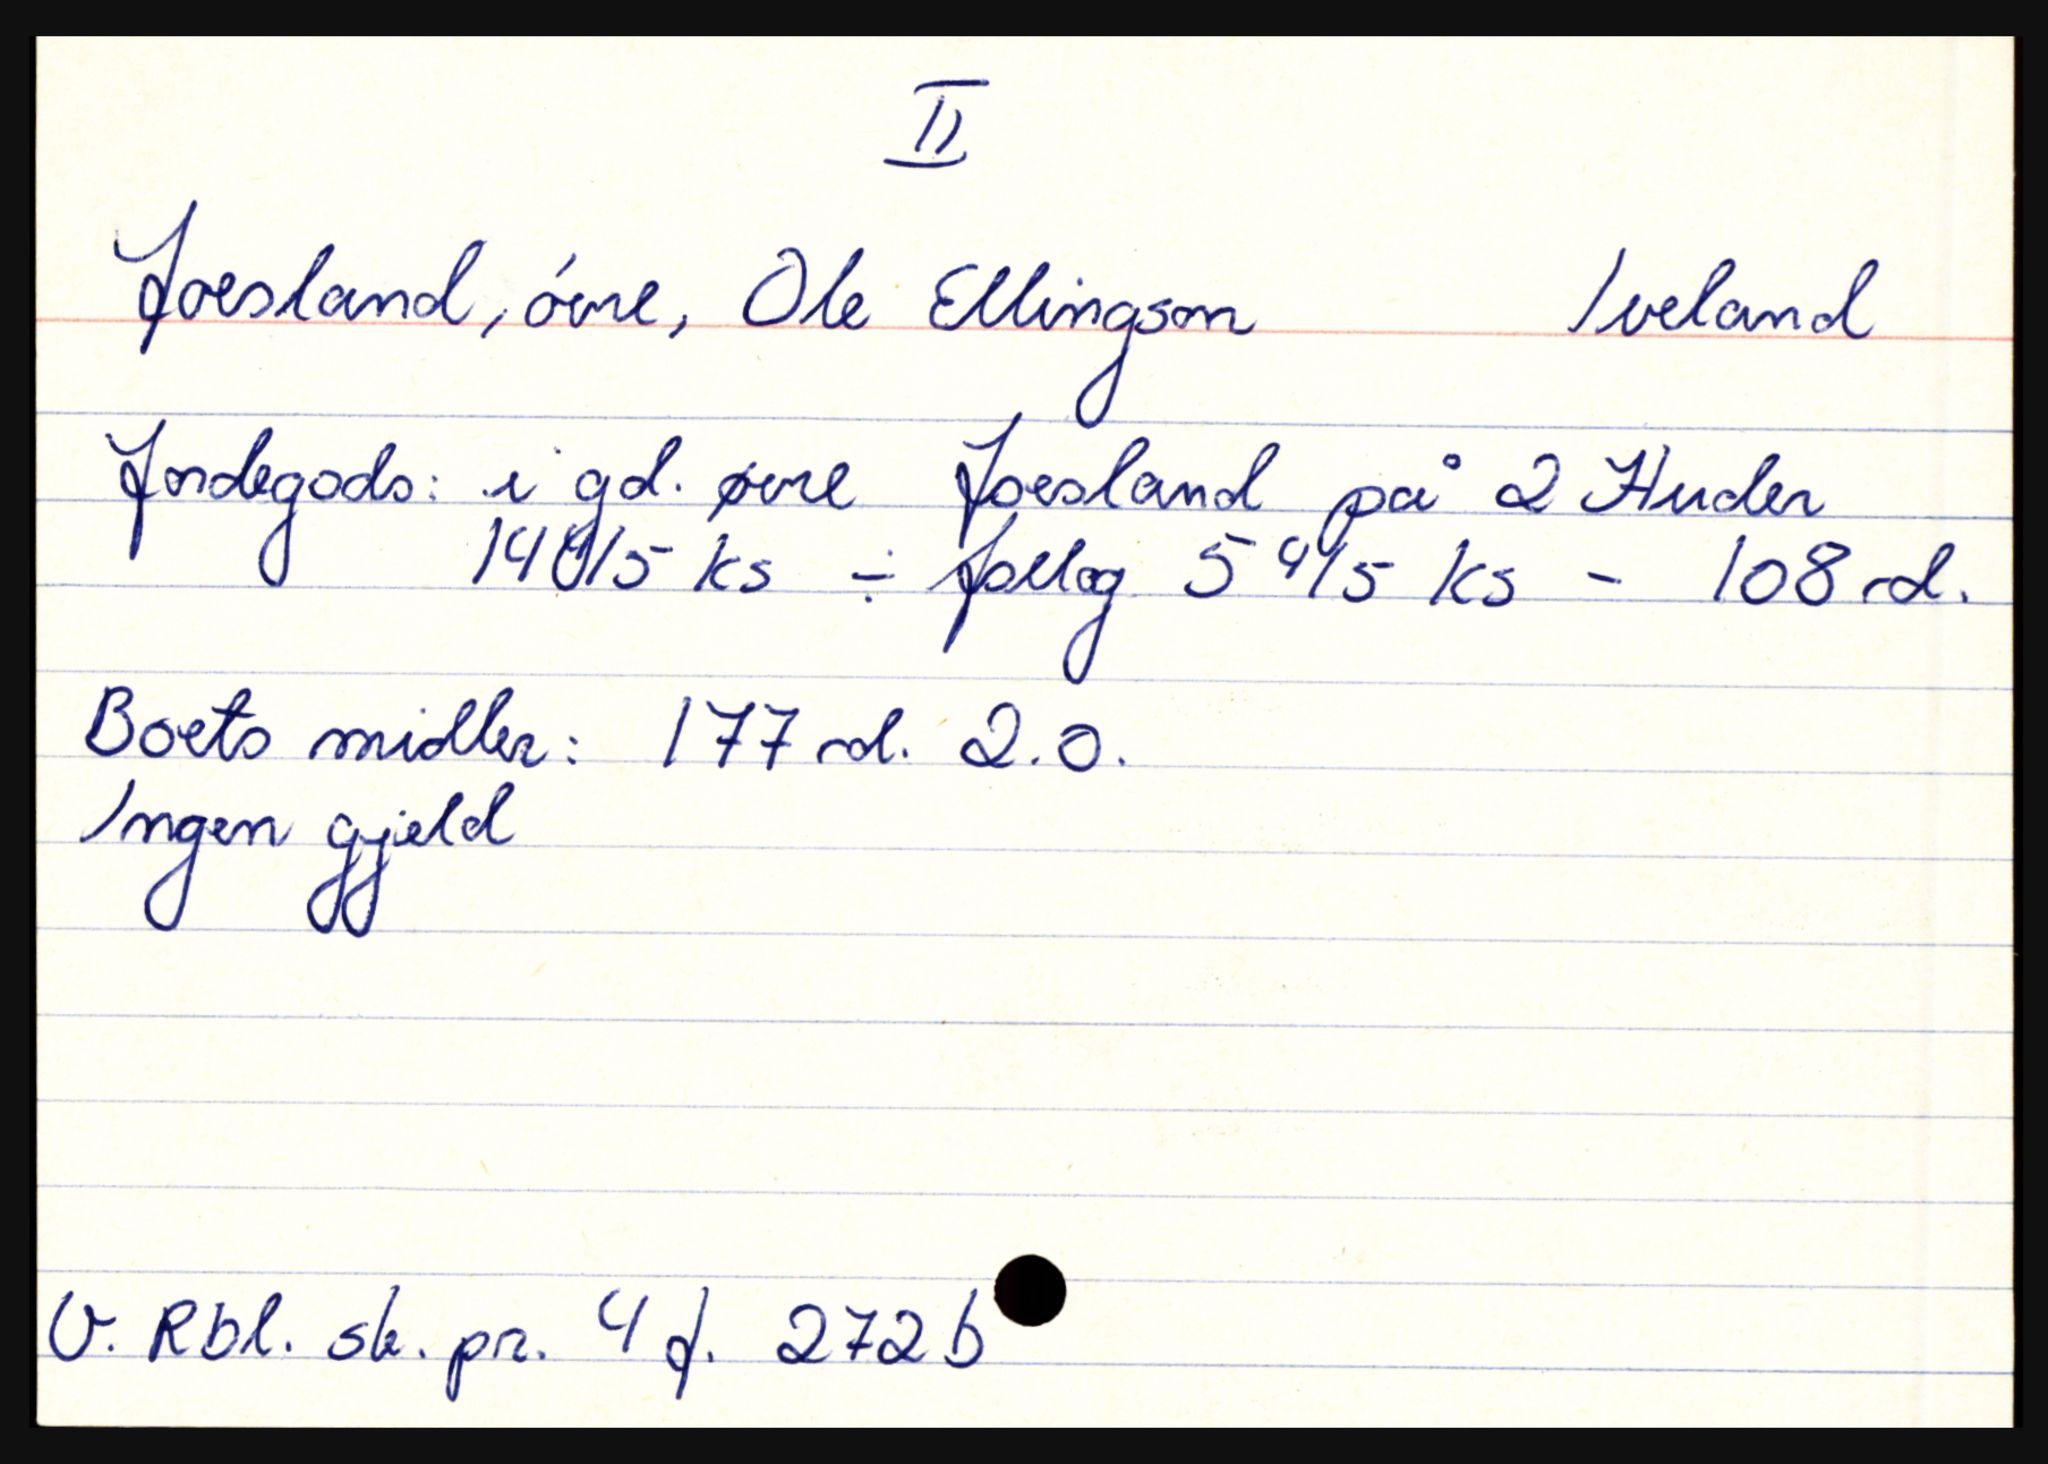 II
Joesland, óvre, Ole Ellingson Iveland
Jordegods: i gd. øvre Joesland på 2 Huder
14 4/5 ks ÷ follog 5 4/5 ks - 108 rd.
Boets midler: 177 rd. 2.0.
Ingen gjæld
V. Rbl. sk. pr. 4 f. 272b